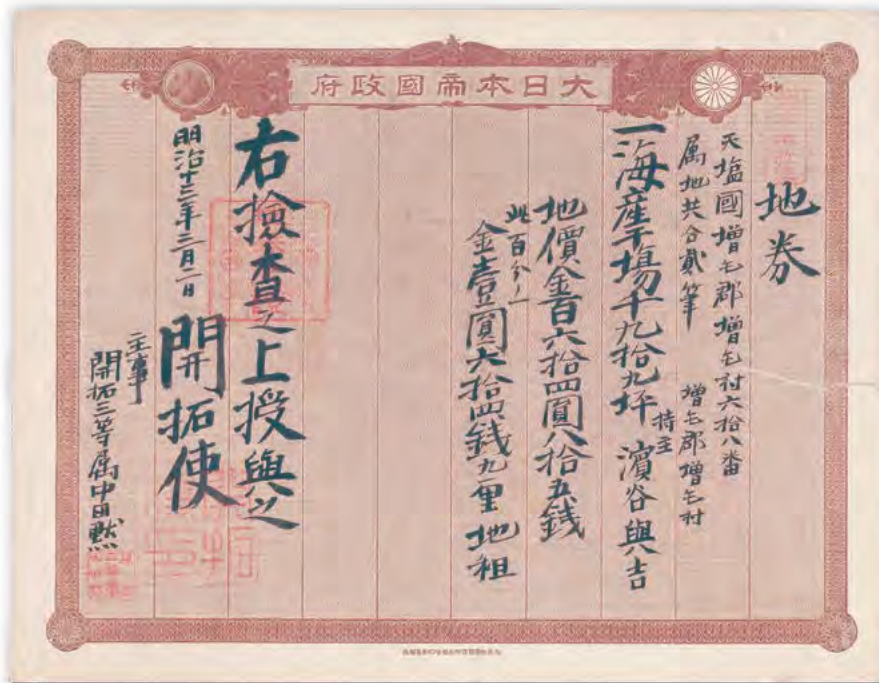 大日本帝國政府
地券
天塩國增毛郡增毛村六拾八番
属地共合貳筆 增毛郡增毛村
一海産干場千九拾九坪 持主 濱谷與吉
地價金百六拾四圓八拾五錢
此百分ノ一
金壹圓六拾四錢九厘 地租
右撿査之上授與之
明治十三年三月二日 開拓使
主事
開拓三等属中田黙